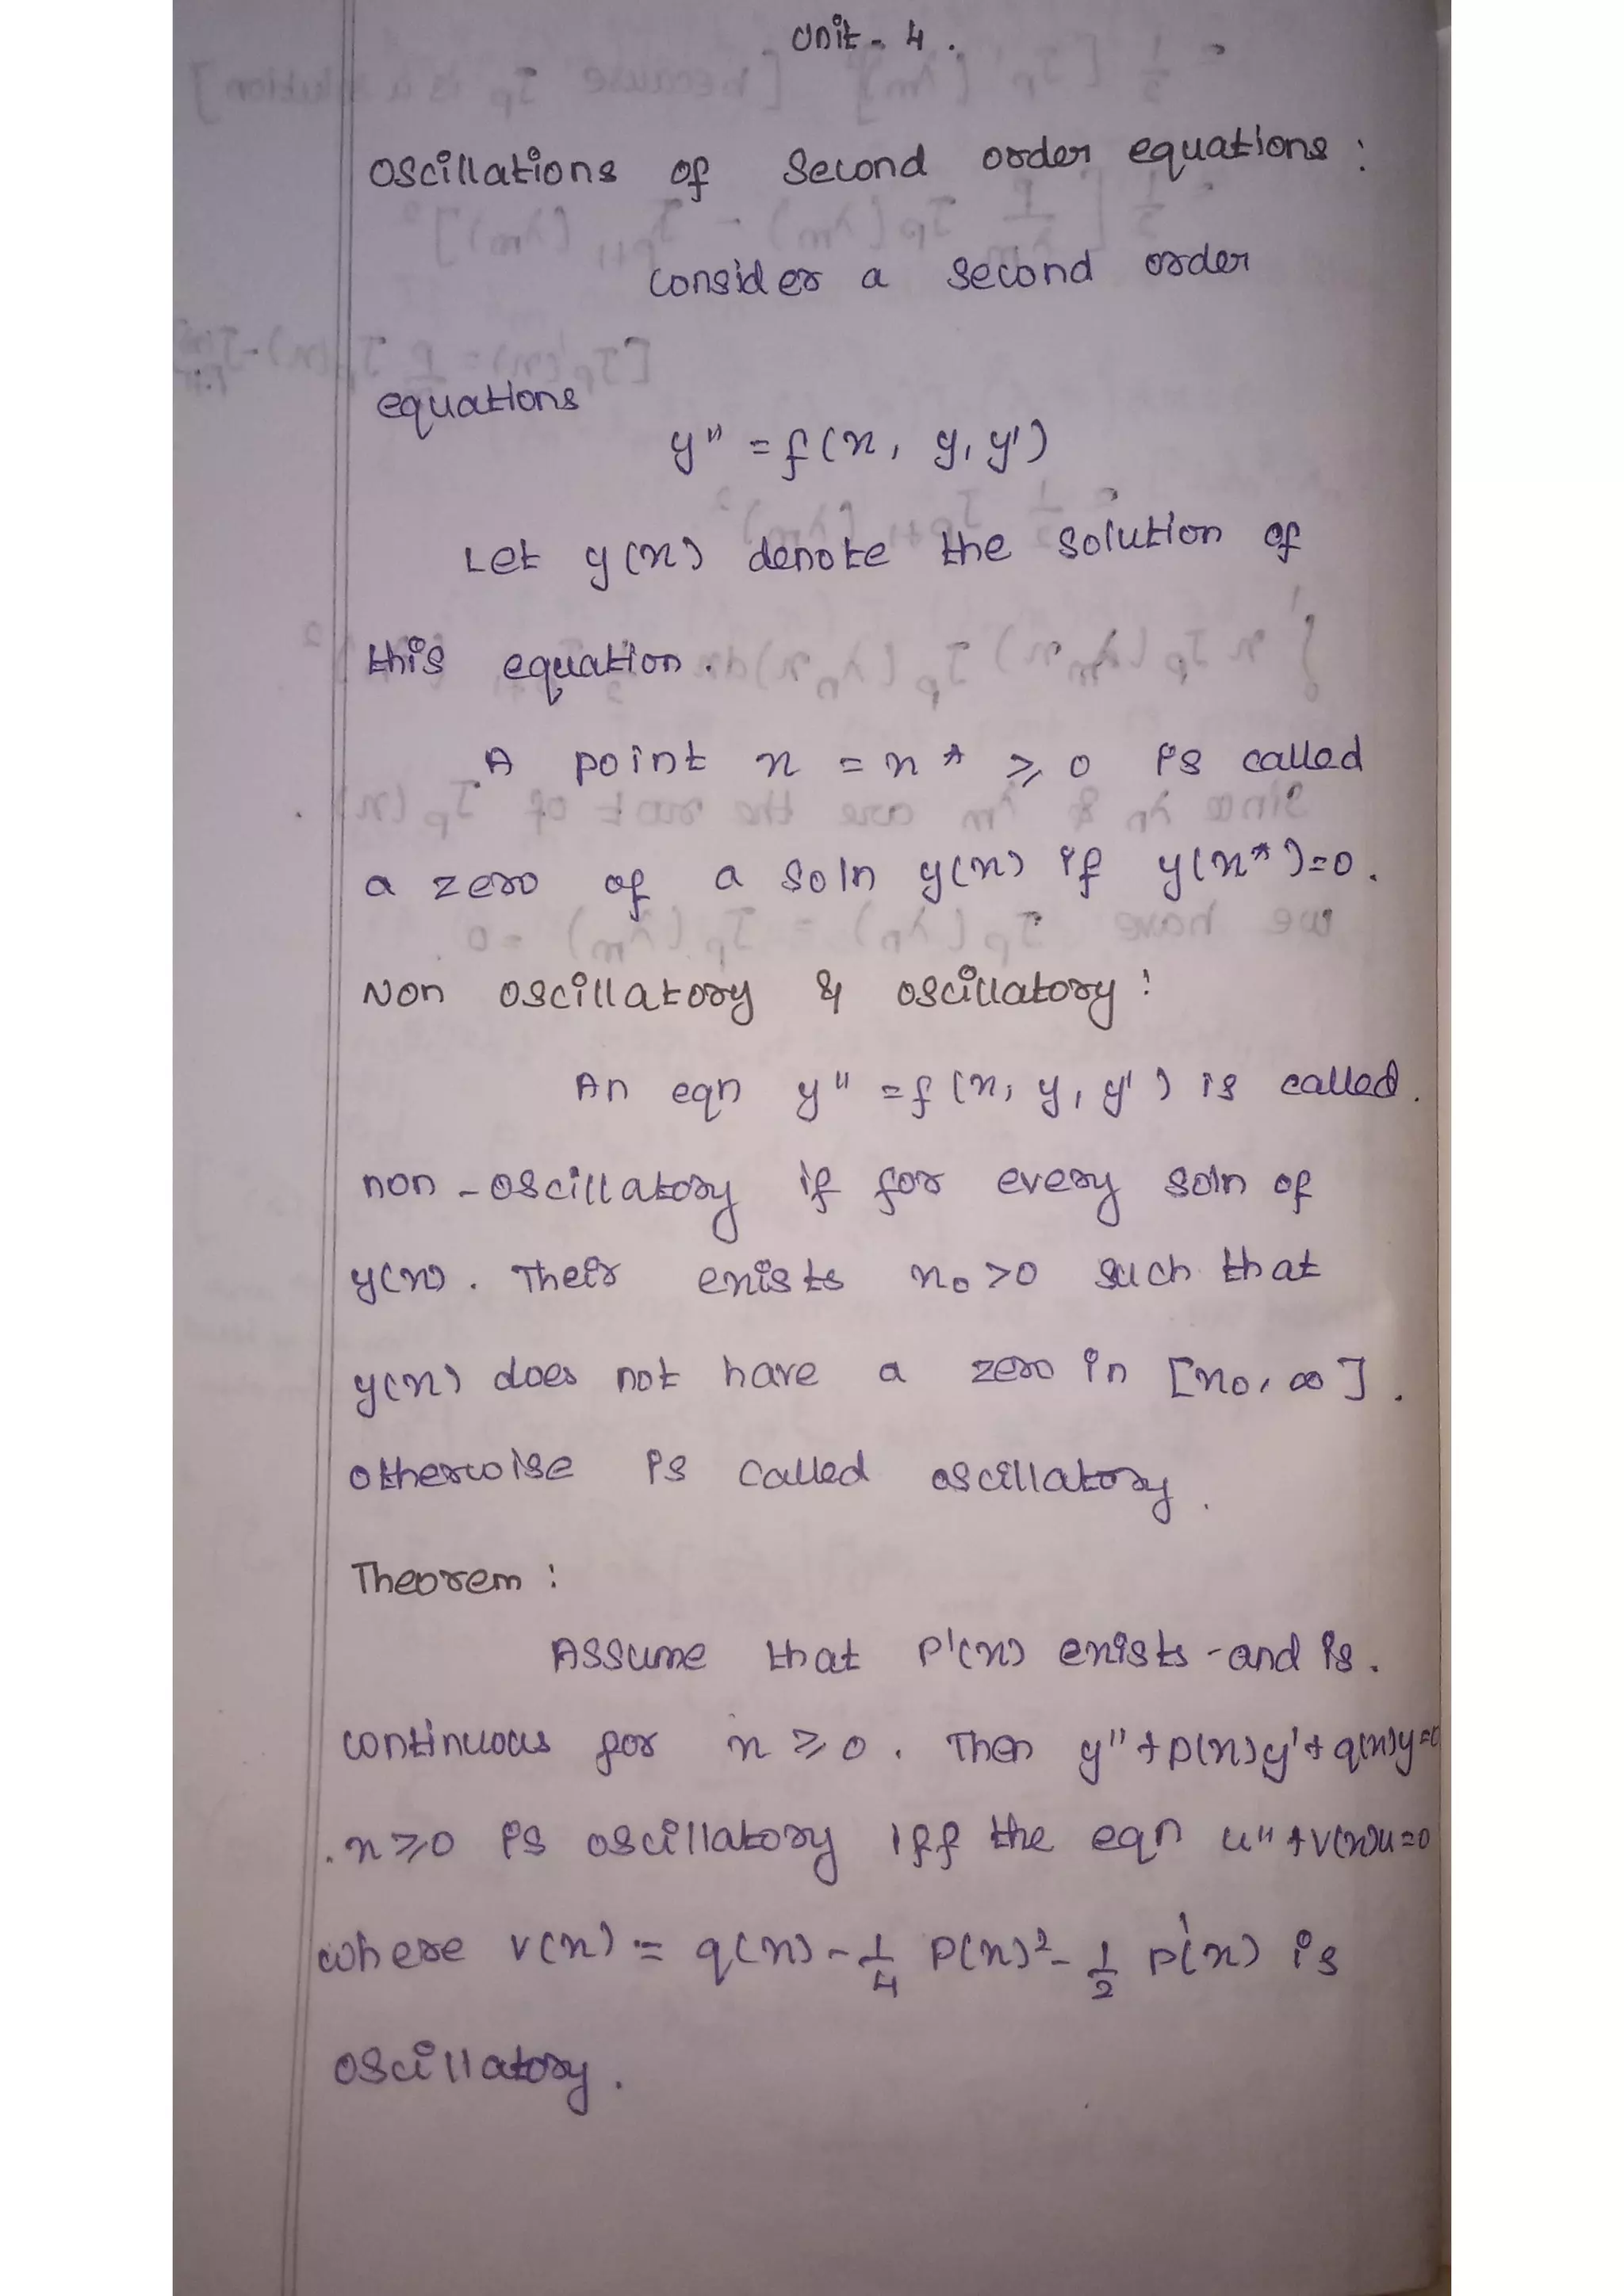 Unit - 4 .
Oscillations of Second order equations :
Consider a Second order
equations
y" = f(x, y, y')
Let y(x) denote the solution of
this equation.
A point x = x* ⩾ 0 is called
a zero of a soln y(x) if y(x*)=0.
Non oscillatory & oscillatory :
An eqn y" = f(x, y, y') is called.
non-oscillatory if for every soln of
y(x). Their exists x₀ >0 such that
y(x) does not have a zero in [x₀, ∞].
otherwise is called oscillatory.
Theorem :
Assume that P'(x) exists and is.
continuous for x ⩾ 0. Then y"+p(x)y'+q(x)y=0
.x⩾0 is oscillatory iff the eqn u"+v(x)u=0
where v(x) = q(x) - 1/4 P(x)² - 1/2 P'(x) is
oscillatory.